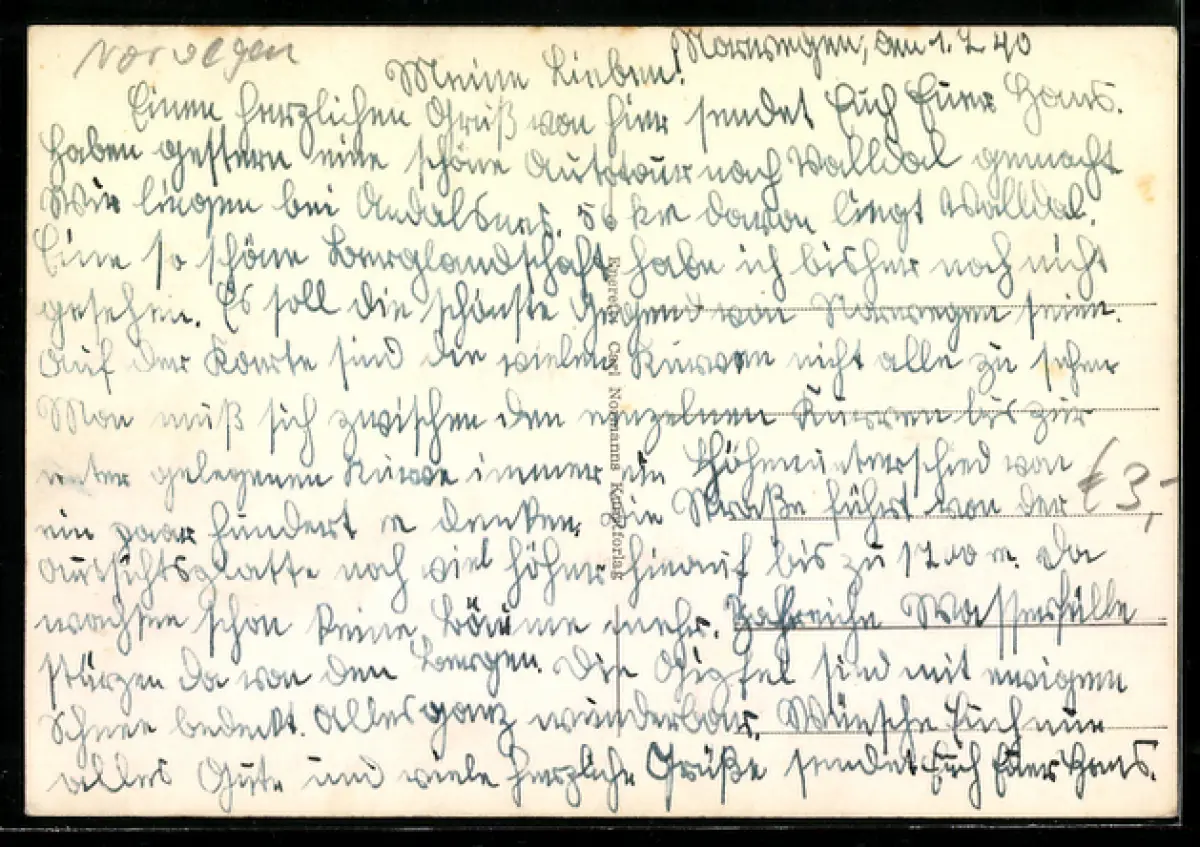 Norwegen
Norwegen, den 1. 7. 40
Meine Lieben!
Einen herzlichen Gruß von hier sendet Euch Euer Hans.
Haben gestern eine schöne Autotour nach Valldal gemacht
Wir liegen bei Andalsnes. 56 km davon liegt Valldal.
Eine so schöne Berglandschaft habe ich bisher noch nicht
gesehen. Es soll die schönste Gegend von Norwegen seien.
Auf der Karte sind die vielen Kurven nicht alle zu sehen
Man muß sich zwischen den einzelnen Kurven bis zur
unter gelegenen Kurve immer ein Höhenunterschied von
ein paar hundert m denken. Die Straße führt von der
Autsichtsplatte noch viel höher hinauf bis zu 1200 m. Da
wachsen schon keine Bäume mehr. Zahreiche Wasserfälle
stürzen da von den Bergen. Die Gipfel sind mit ewigen
Schnee bedeckt. Alles ganz wunderbar. Wünsche Euch nur
alles Gute und viele herzliche Grüße sendet Euch Euer Hans.
Eneret: Carl Normanns Kunstforlag
€3,-